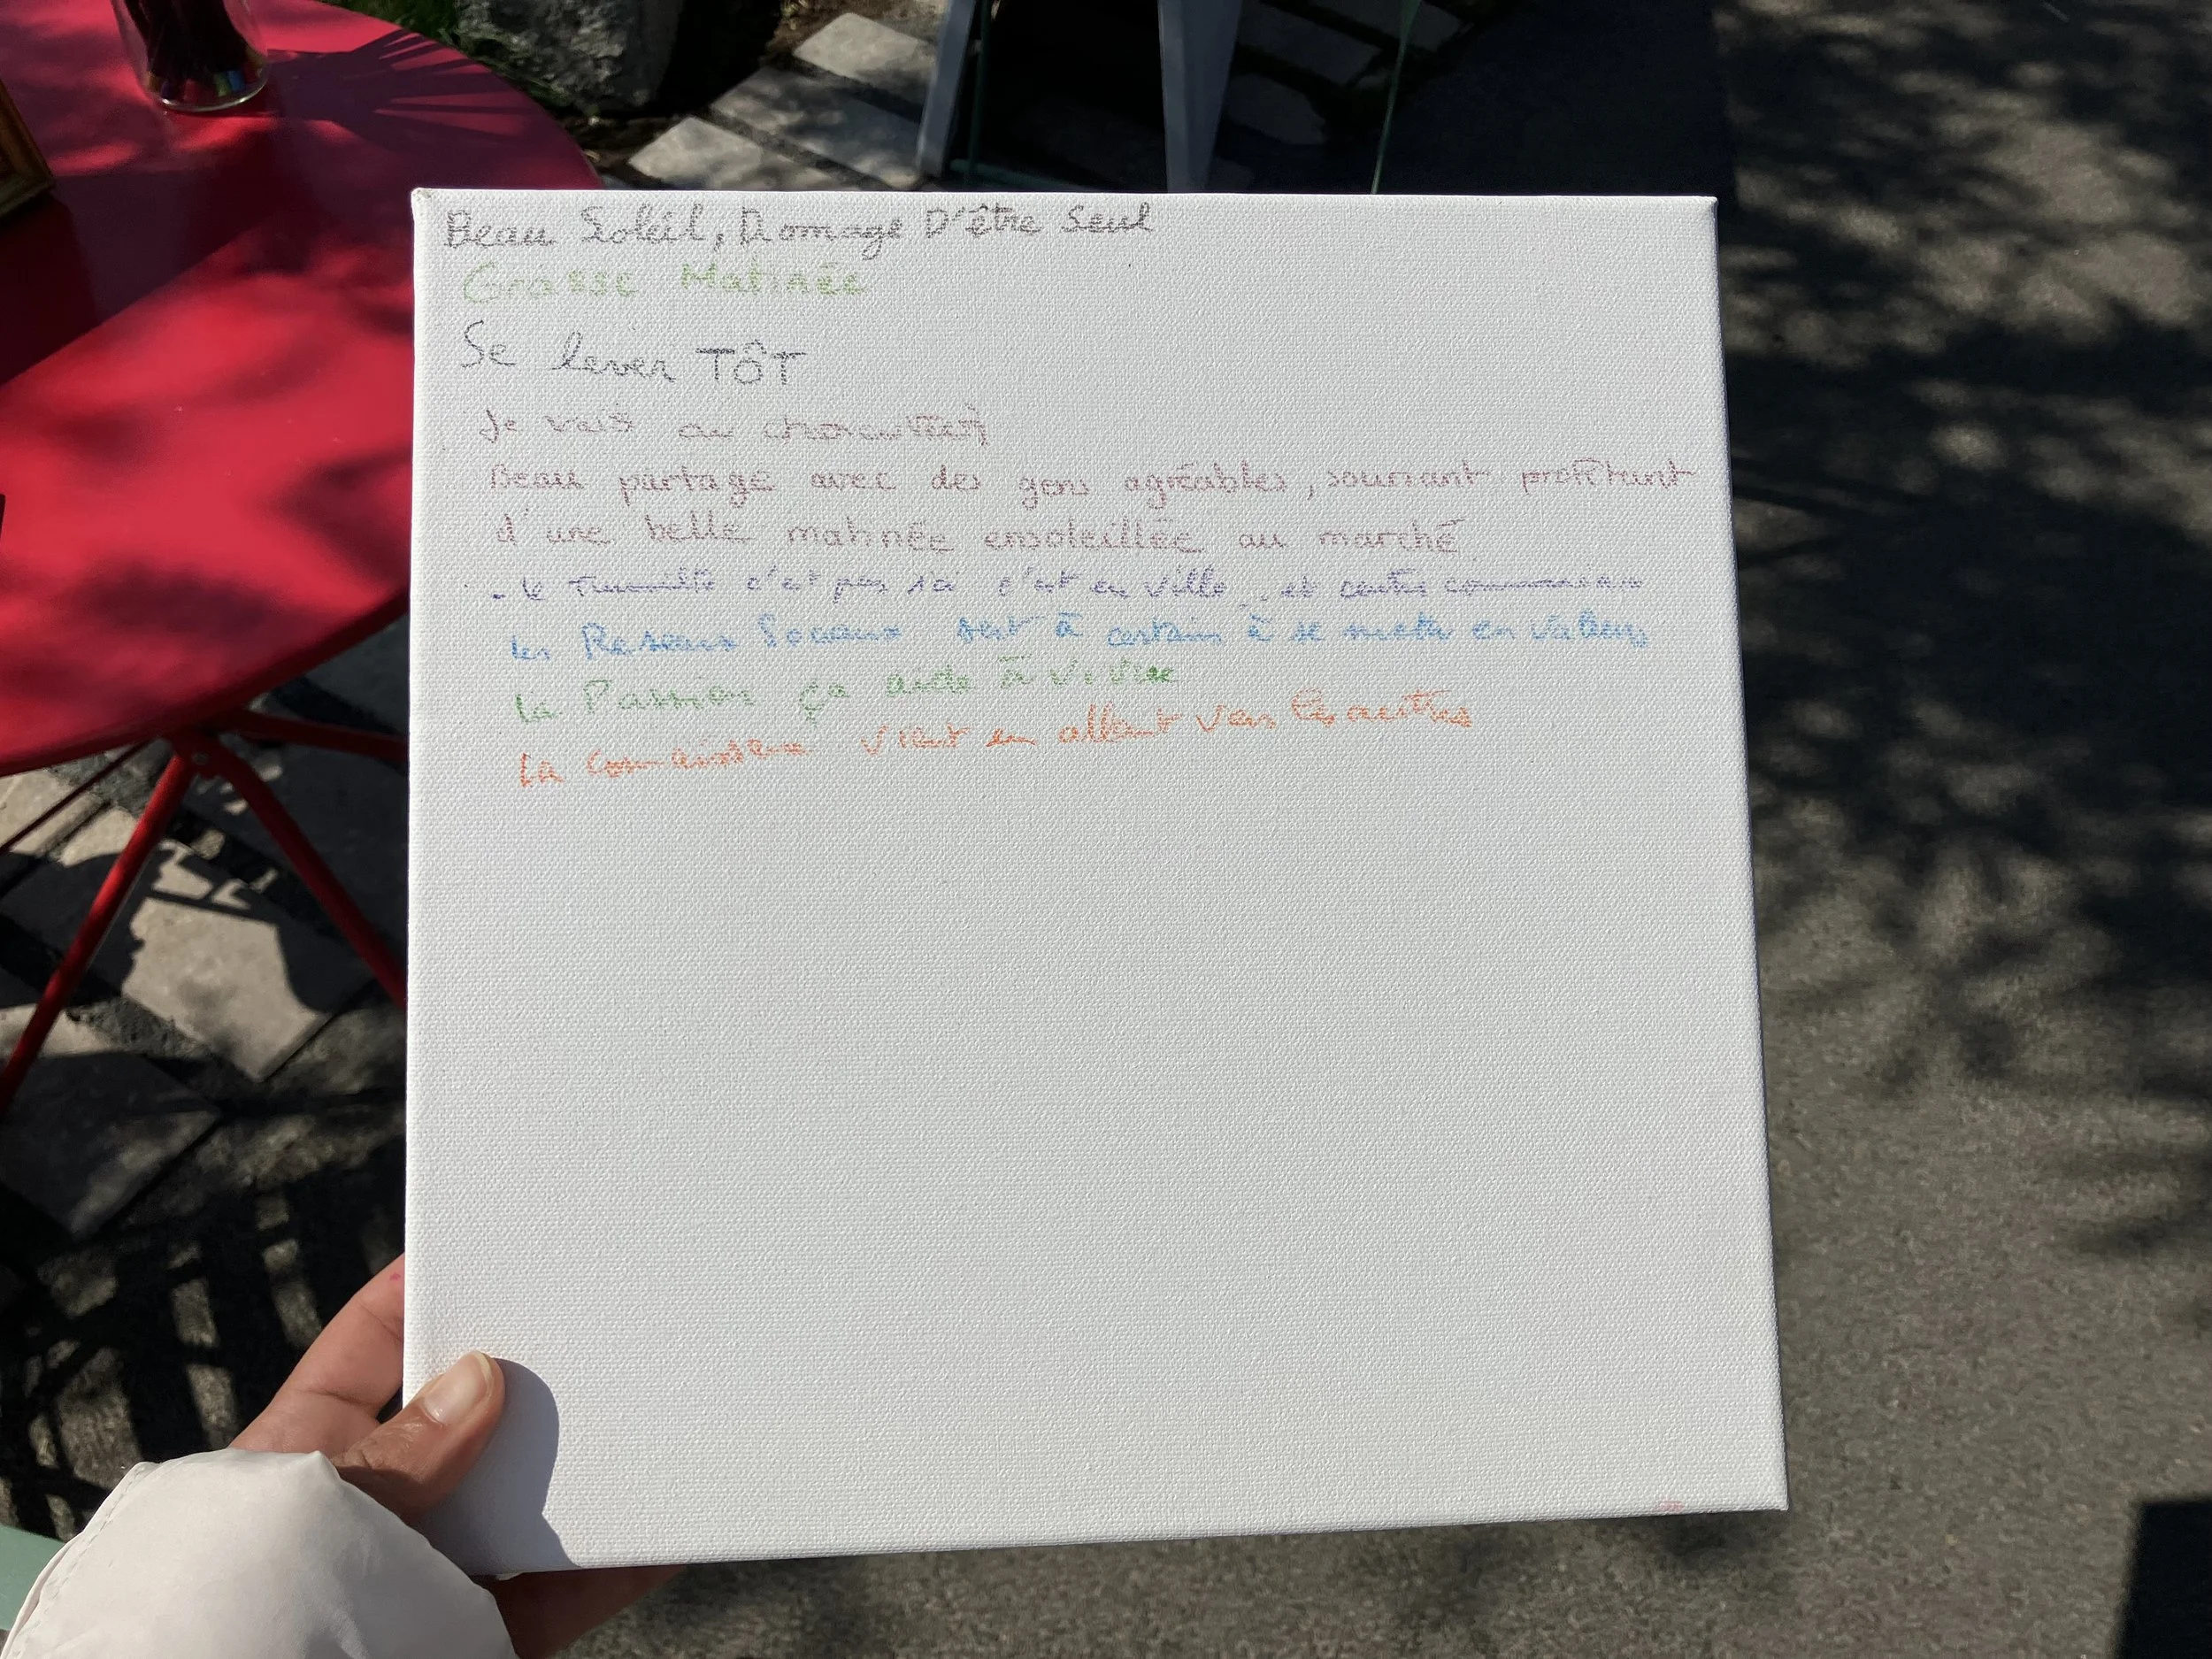 Beau Soleil, Domage D'être Seul
Grasse Matinée
Se lever TÔT
Je vais au
Beau partage avec des gens agréables, souriant profitant
d'une belle matinée ensoleillée au marché
- le c'est pas ici c'est en ville et
les Reseaux Sociaux sert à certain à se mettre en valeur
la Passion ça aide à vivre
La connaissance vient en allant vers les autres